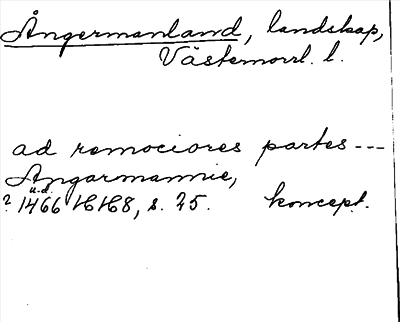 Ångermanland, landskap,
Västernorrl. l.
ad remociores partes ---
Angarmannie,
u.d.
? 1466 HH8, s. 75. koncept.